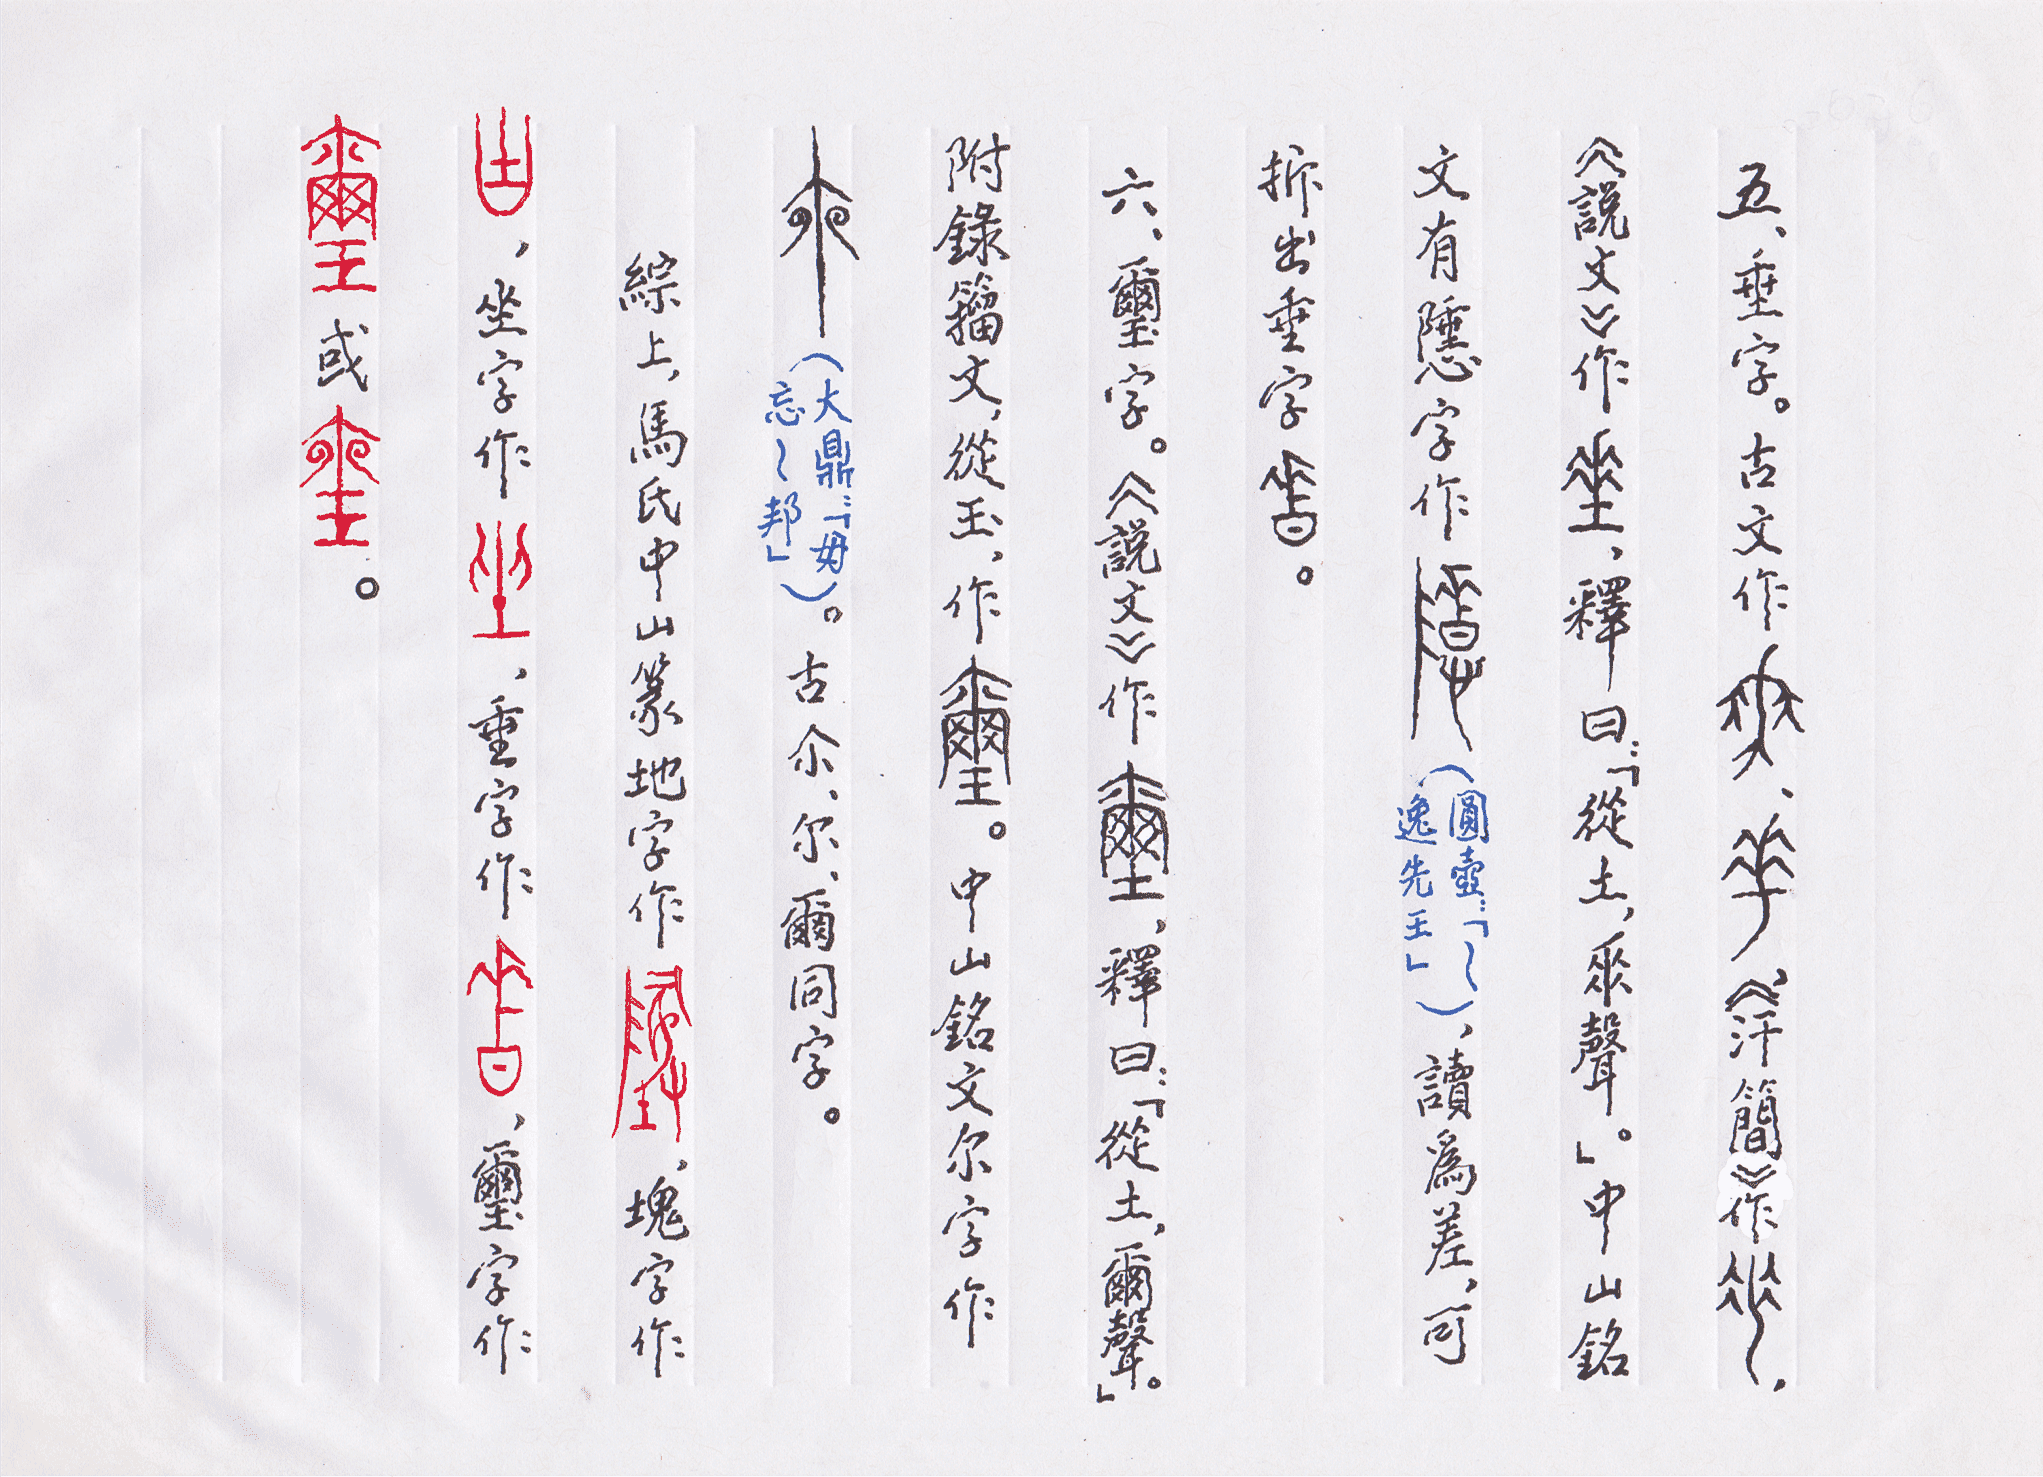 五、垂字。古文作、《汗簡》作，
《説文》作，釋曰：「從土，𠂹聲。」中山銘
文有字作（圓壺：「～
逸先王」），讀爲差，可
拆出垂字。
六、壐字。《説文》作，釋曰：「從土，爾聲。」
附錄籀文，從玉，作。中山銘文尔字作
（大鼎：「毋
忘～邦」）。古尒、尔、爾同字。
綜上，馬氏中山篆地字作，塊字作
，坐字作，垂字作，壐字作
或。